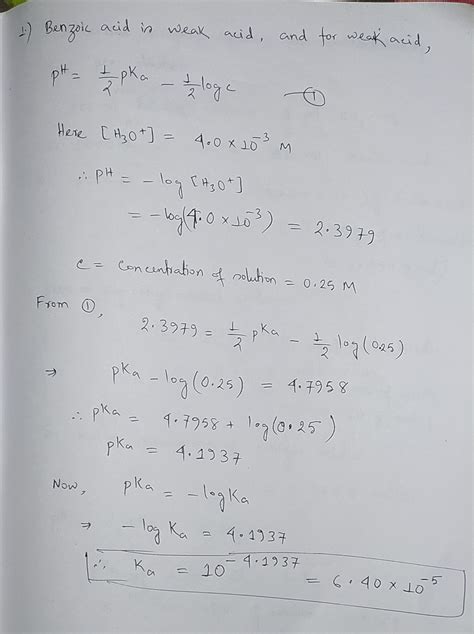 1.) Benzoic acid is weak acid, and for weak acid,
pH = 1/2 pKa - 1/2 log c —①
Here [H3O+] = 4.0 × 10^-3 M
∴ pH = - log [H3O+]
= -log(4.0 × 10^-3) = 2.3979
c = concentration of solution = 0.25 M
From ①,
2.3979 = 1/2 pKa - 1/2 log(0.25)
⇒ pKa - log(0.25) = 4.7958
∴ pKa = 4.7958 + log(0.25)
pKa = 4.1937
Now, pKa = -logKa
⇒ -log Ka = 4.1937
∴ Ka = 10^-4.1937 = 6.40 × 10^-5